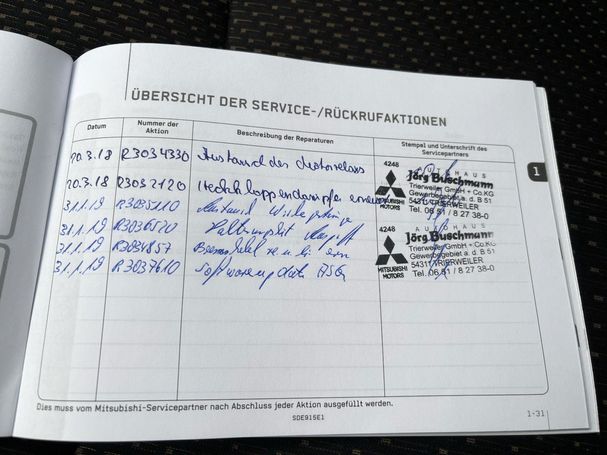 ÜBERSICHT DER SERVICE-/RÜCKRUFAKTIONEN
Datum
Nummer der
Aktion
Beschreibung der Reparaturen
Stempel und Unterschrift des
Servicepartners
20.3.18 R3034330 Austausch des Motorrelais
20.3.18 R3032120 Heckklappendämpfer
31.1.19 R3035110 Austausch
31.1.19 R3036520
31.1.19 R3034857
31.1.19 R3037610 Softwareupdate ASG
4248 AUTOHAUS
Jörg Buschmann
Trierweiler GmbH + Co.KG
Gewerbegebiet a. d. B 51
54311 TRIERWEILER
Tel. 06 51 / 8 27 38-0
MITSUBISHI
MOTORS
4248 AUTOHAUS
Jörg Buschmann
Trierweiler GmbH + Co.KG
Gewerbegebiet a. d. B 51
54311 TRIERWEILER
Tel. 06 51 / 8 27 38-0
MITSUBISHI
MOTORS
1
Dies muss vom Mitsubishi-Servicepartner nach Abschluss jeder Aktion ausgefüllt werden.
SDE915E1
1-31